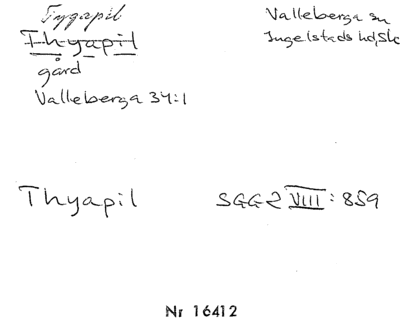 Tygapil
Thyapil
gård
Valleberga 34:1
Valleberga sn
Ingelstads hd, Sk
Thyapil
SGG 2 VIII: 859
Nr 16412